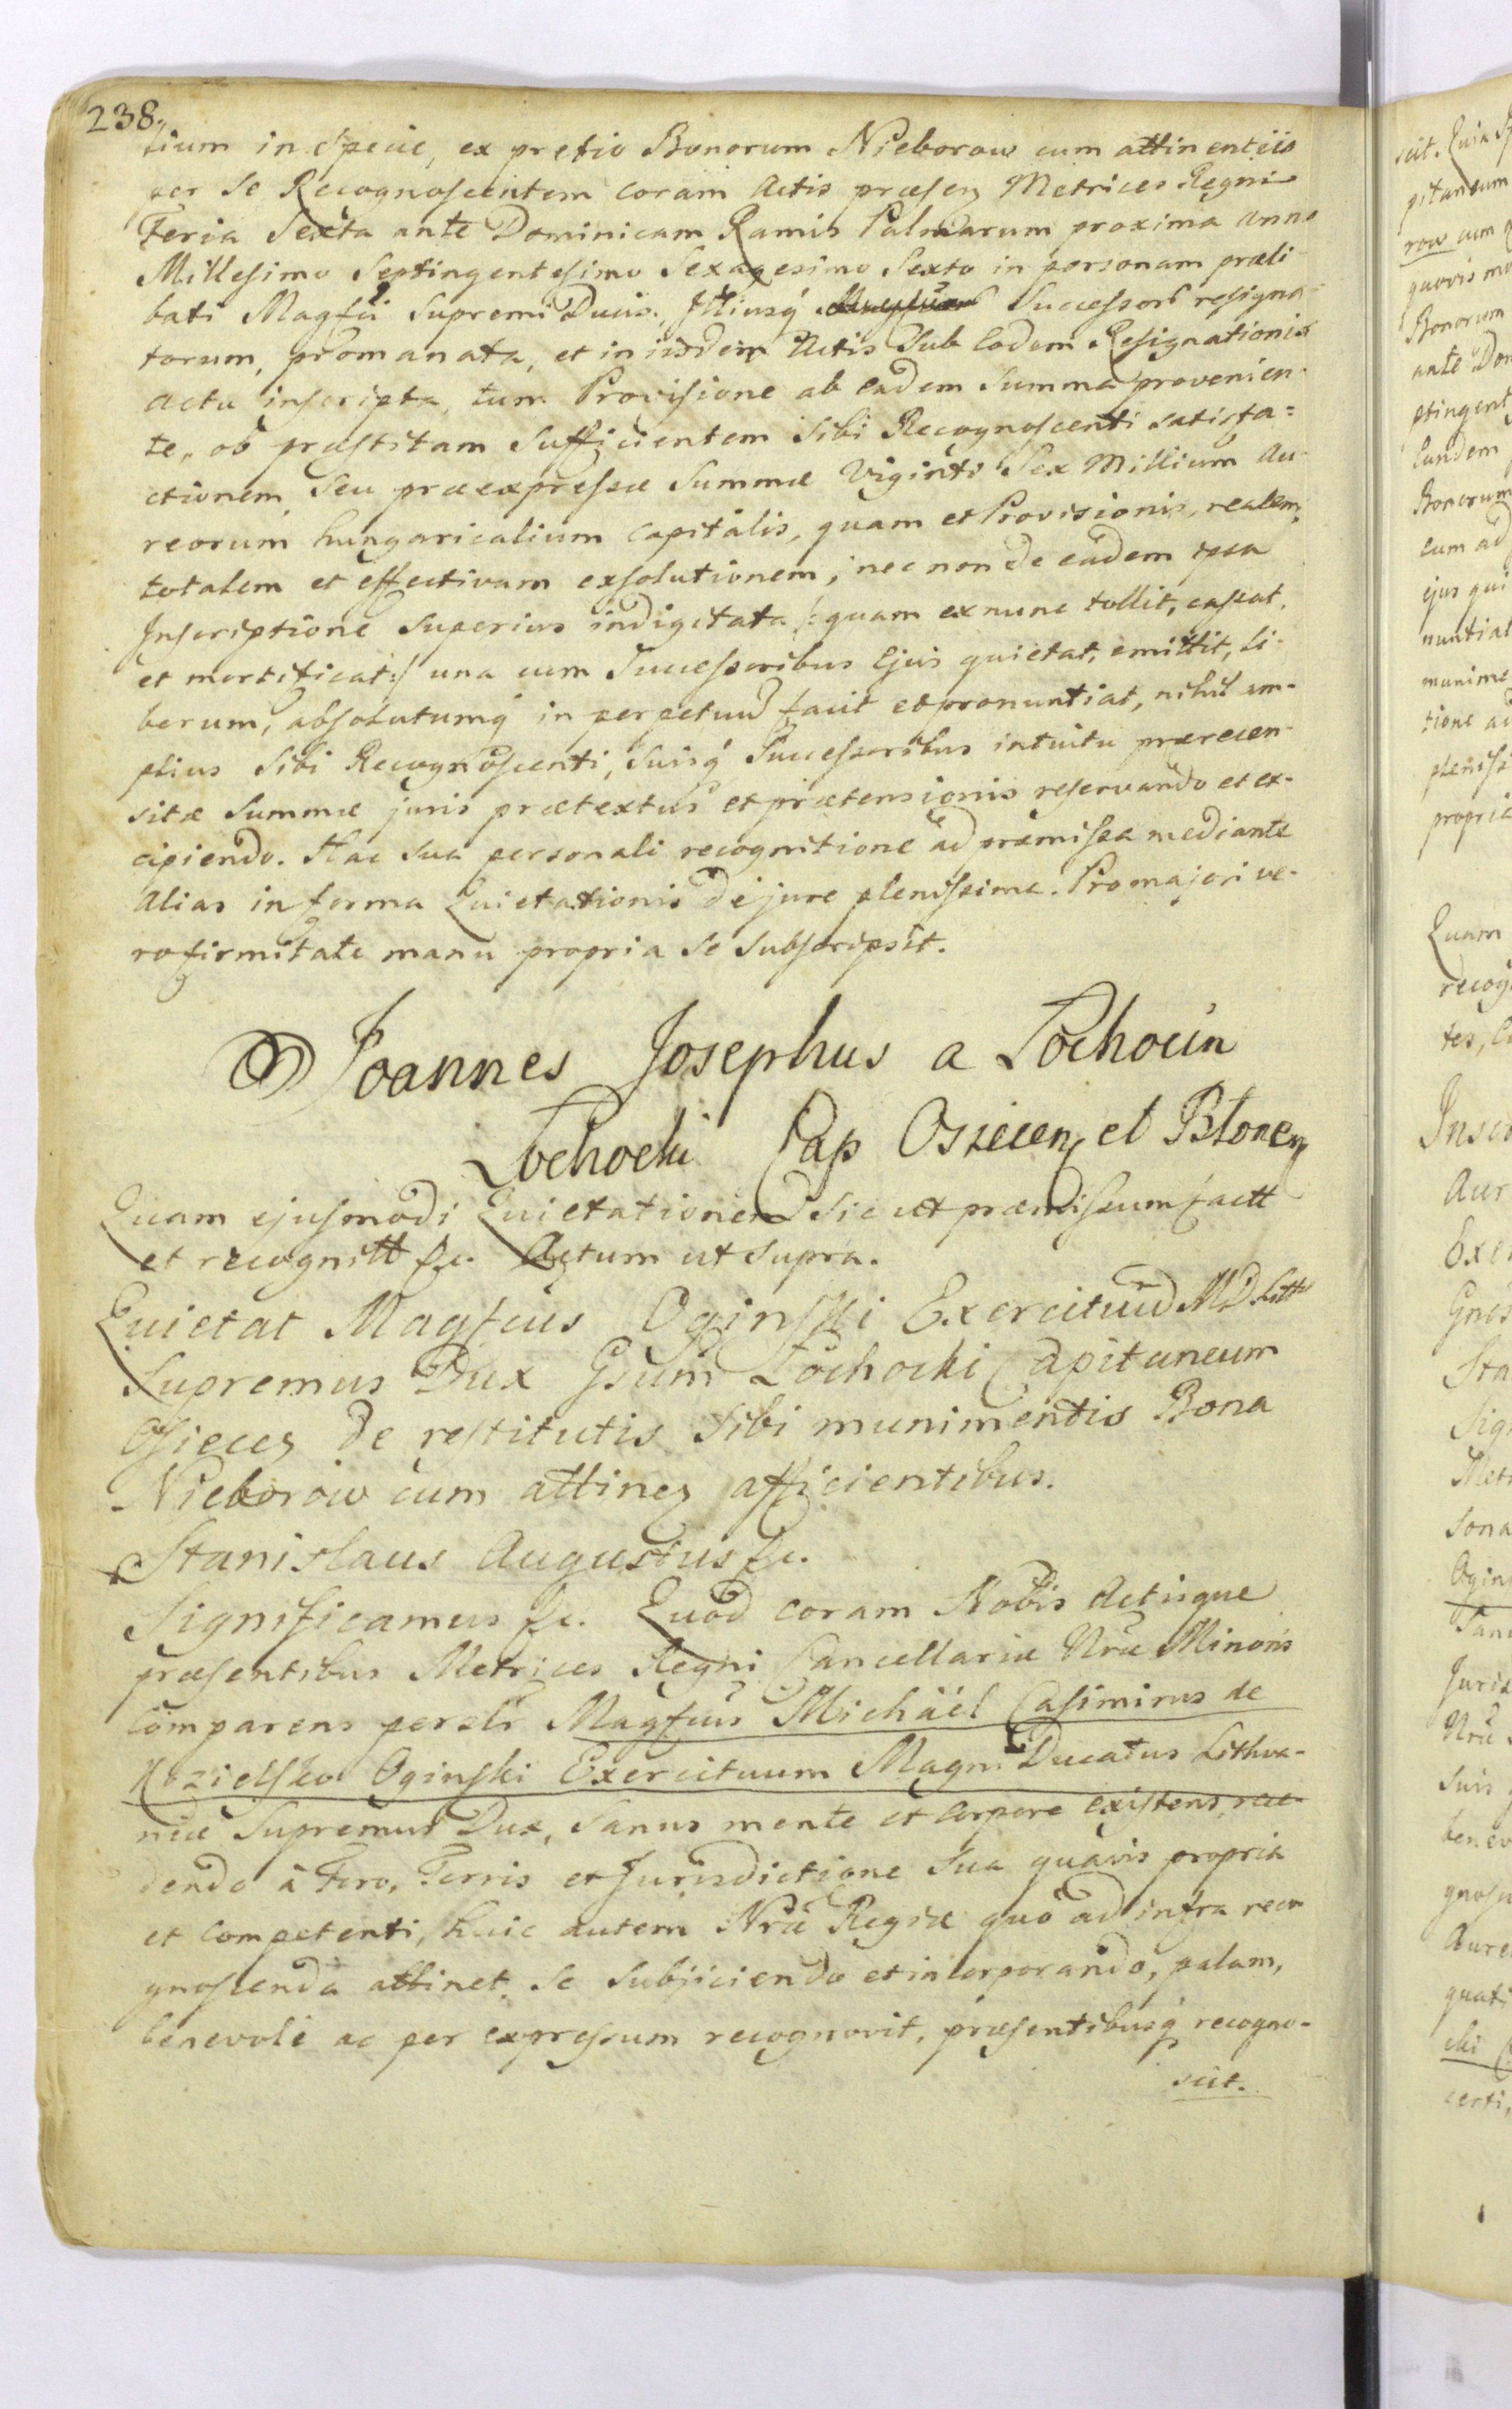 238.
lium in Specie, ex pretio Bonorum Nieborow cum attinentiis
per Se Recognoscentem coram Actis præsen Metrices Regni
Feria Sexta ante Dominicam Ramis Palmarum proxima anno
Millesimo Septingentesimo Sexagesimo Sexto in personam præli-
bati Magfci Supremi Ducis. Illiusq Successors resigna-
torum, promanata, et in iisdem Actis Sub Eodem Resignationis
actu inscripta, tum Provisione ab eadem Summa provenien-
te, ob præstitam Sufficientem Sibi Recognoscenti satisfa=
ctionem, Seu præexpressæ Summæ Viginti Sex Millium Au-
reorum hungaricalium Capitalis, quam et Provisionis, realem,
totalem et effectivam exsolutionem, nec non de eâdem ipsa
Inscriptione Superius indigitata /: quam ex nunc tollit, cassat,
et mortificat :/ una cum Successoribus Ejus quietat, emittit, li-
berum, absolutumq in perpetuu facit et pronuntiat, nihil am-
plius Sibi Recognoscenti, Suisq Successoribus intuitu præreen-
sitæ Summæ juris prætextus et prætensionis reservando et ex-
cipiendo. Hac Sua personali recognitione ad præmissa mediante
Alias in forma Quietationis de jure plenissima. Pro majori ve-
ro firmitate manu propria Se Subscripsit.
Joannes Josephus a Łochocin
Łochocki Cap Osiecen et Błonen
Quam ejusmodi Quietationem Sic ut præmissum facit
et recognitt &c. Actum ut Supra.
Quietat Magfcus Oginski Exercituu M D Litt
Supremus Dux Gsum Łochocki Capitaneum
Osiecen de restitutis Sibi munimentis Bona
Nieborow cum attinen afficientibus.
Stanislaus Augustus &c.
Significamus &c. Quod coram Nobis Actisque
præsentibus Metrices Regni Cancellariæ Nræ Minoris
Comparens perslr Magfcus Michäel Casimirus de
Kozielsko Oginski Exercituum Magni Ducatus Lithva-
niæ Supremus Dux, Sanus mente et Corpore existens, rece-
dendo â Foro, Terris et Jurisdictione Sua quavis propria
et Competenti, huic autem Nræ Regiæ quo ad infra reco-
gnoscenda attinet, Se Subjiciendo et incorporando, palam,
benevole ac per expressum recognovit, præsentibusq recogno-
scit.